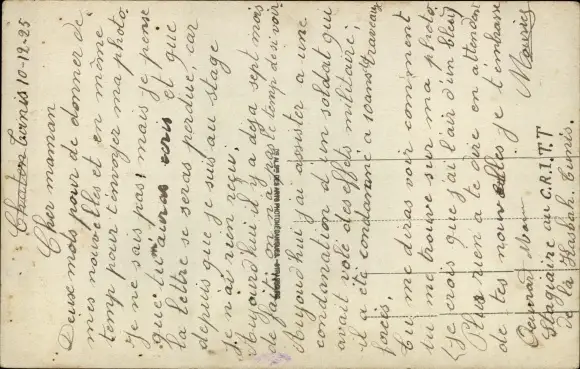 Tunis 10-12-25
Cher maman
Deux mots pour de donner de
mes nouvelles et en même
temp pour t'envoyer ma photo
Je ne sais pas mais je pense
que tu auras ecris et que
la lettre se seras perdue, car
depuis que je suis au stage
Je n'ai rien reçu.
Aujourd'hui il y a deja sept mois
de fait on na pas le temp de si voir
Aujourd'hui j'ai assister a une
condanation d'un soldat qui
avait volé des effets militaire,
il a été condanné a 10 ans travaux
forcés.
tu me diras voir comment
tu me trouve sur ma photo
(Je crois que j'ai l'air d'un bleu)
Plus rien a te dire en attendant
de tes nouvelles je t'embrasse
Maurice
Stagiaire au C.R.I.T.T
de la Kasbah. Tunis.